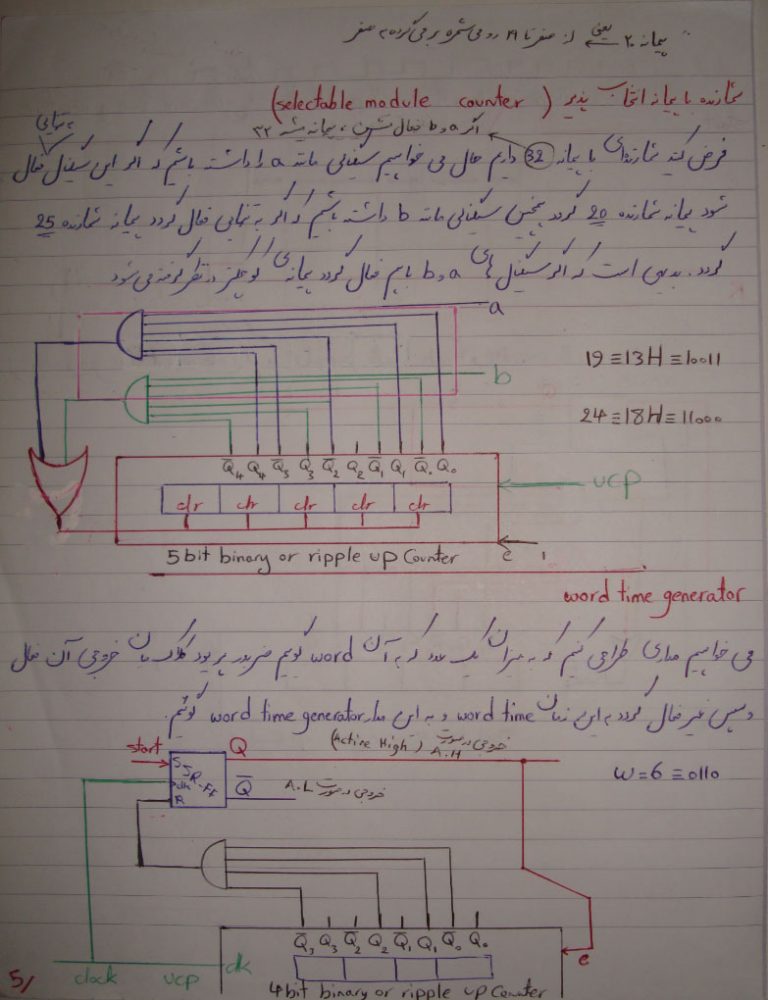 پیمانه ۲۰ یعنی از صفر تا ۱۹ می‌شمرد بر می‌گردد به صفر
شمارنده با پیمانه انتخاب پذیر (selectable module counter)
اگر a و b فعال نشدن، پیمانه شد ۳۲
به تنهایی
فرض کنید شمارنده‌ای با پیمانه 32 داریم حال می خواهیم سیگنالی مانند a را داشته باشیم که اگر این سیگنال فعال
شود پیمانه شمارنده 20 گردد همچنین سیگنالی مانند b داشته باشیم که اگر به تنهایی فعال گردد پیمانه شمارنده 25
گردد. بدیهی است که اگر سیگنال های a و b با هم فعال گردد پیمانه‌ی کوچکتر در نظر گرفته می شود
a
19 ≡ 13H ≡ 10011
b
24 ≡ 18H ≡ 11000
Q̅₄ Q₄ Q̅₃ Q₃ Q̅₂ Q₂ Q̅₁ Q₁ Q̅₀ Q₀
ucp
clr clr clr clr clr
e 1
5 bit binary or ripple up Counter
word time generator
می خواهیم مداری طراحی کنیم که به میزان یک عدد که به آن word گوییم ضربدر پریود کلاک مان خروجی آن فعال
و سپس غیر فعال گردد به این زمان word time و به این مدار word time generator گوئیم.
start
S JR-FF
clk
R
Q
خروجی در صورت A.H (Active High)
Q̅
خروجی در صورت A.L
w = 6 ≡ 0110
Q̅₃ Q₃ Q̅₂ Q₂ Q̅₁ Q₁ Q̅₀ Q₀
e
clock ucp clk
4 bit binary or ripple up Counter
5/